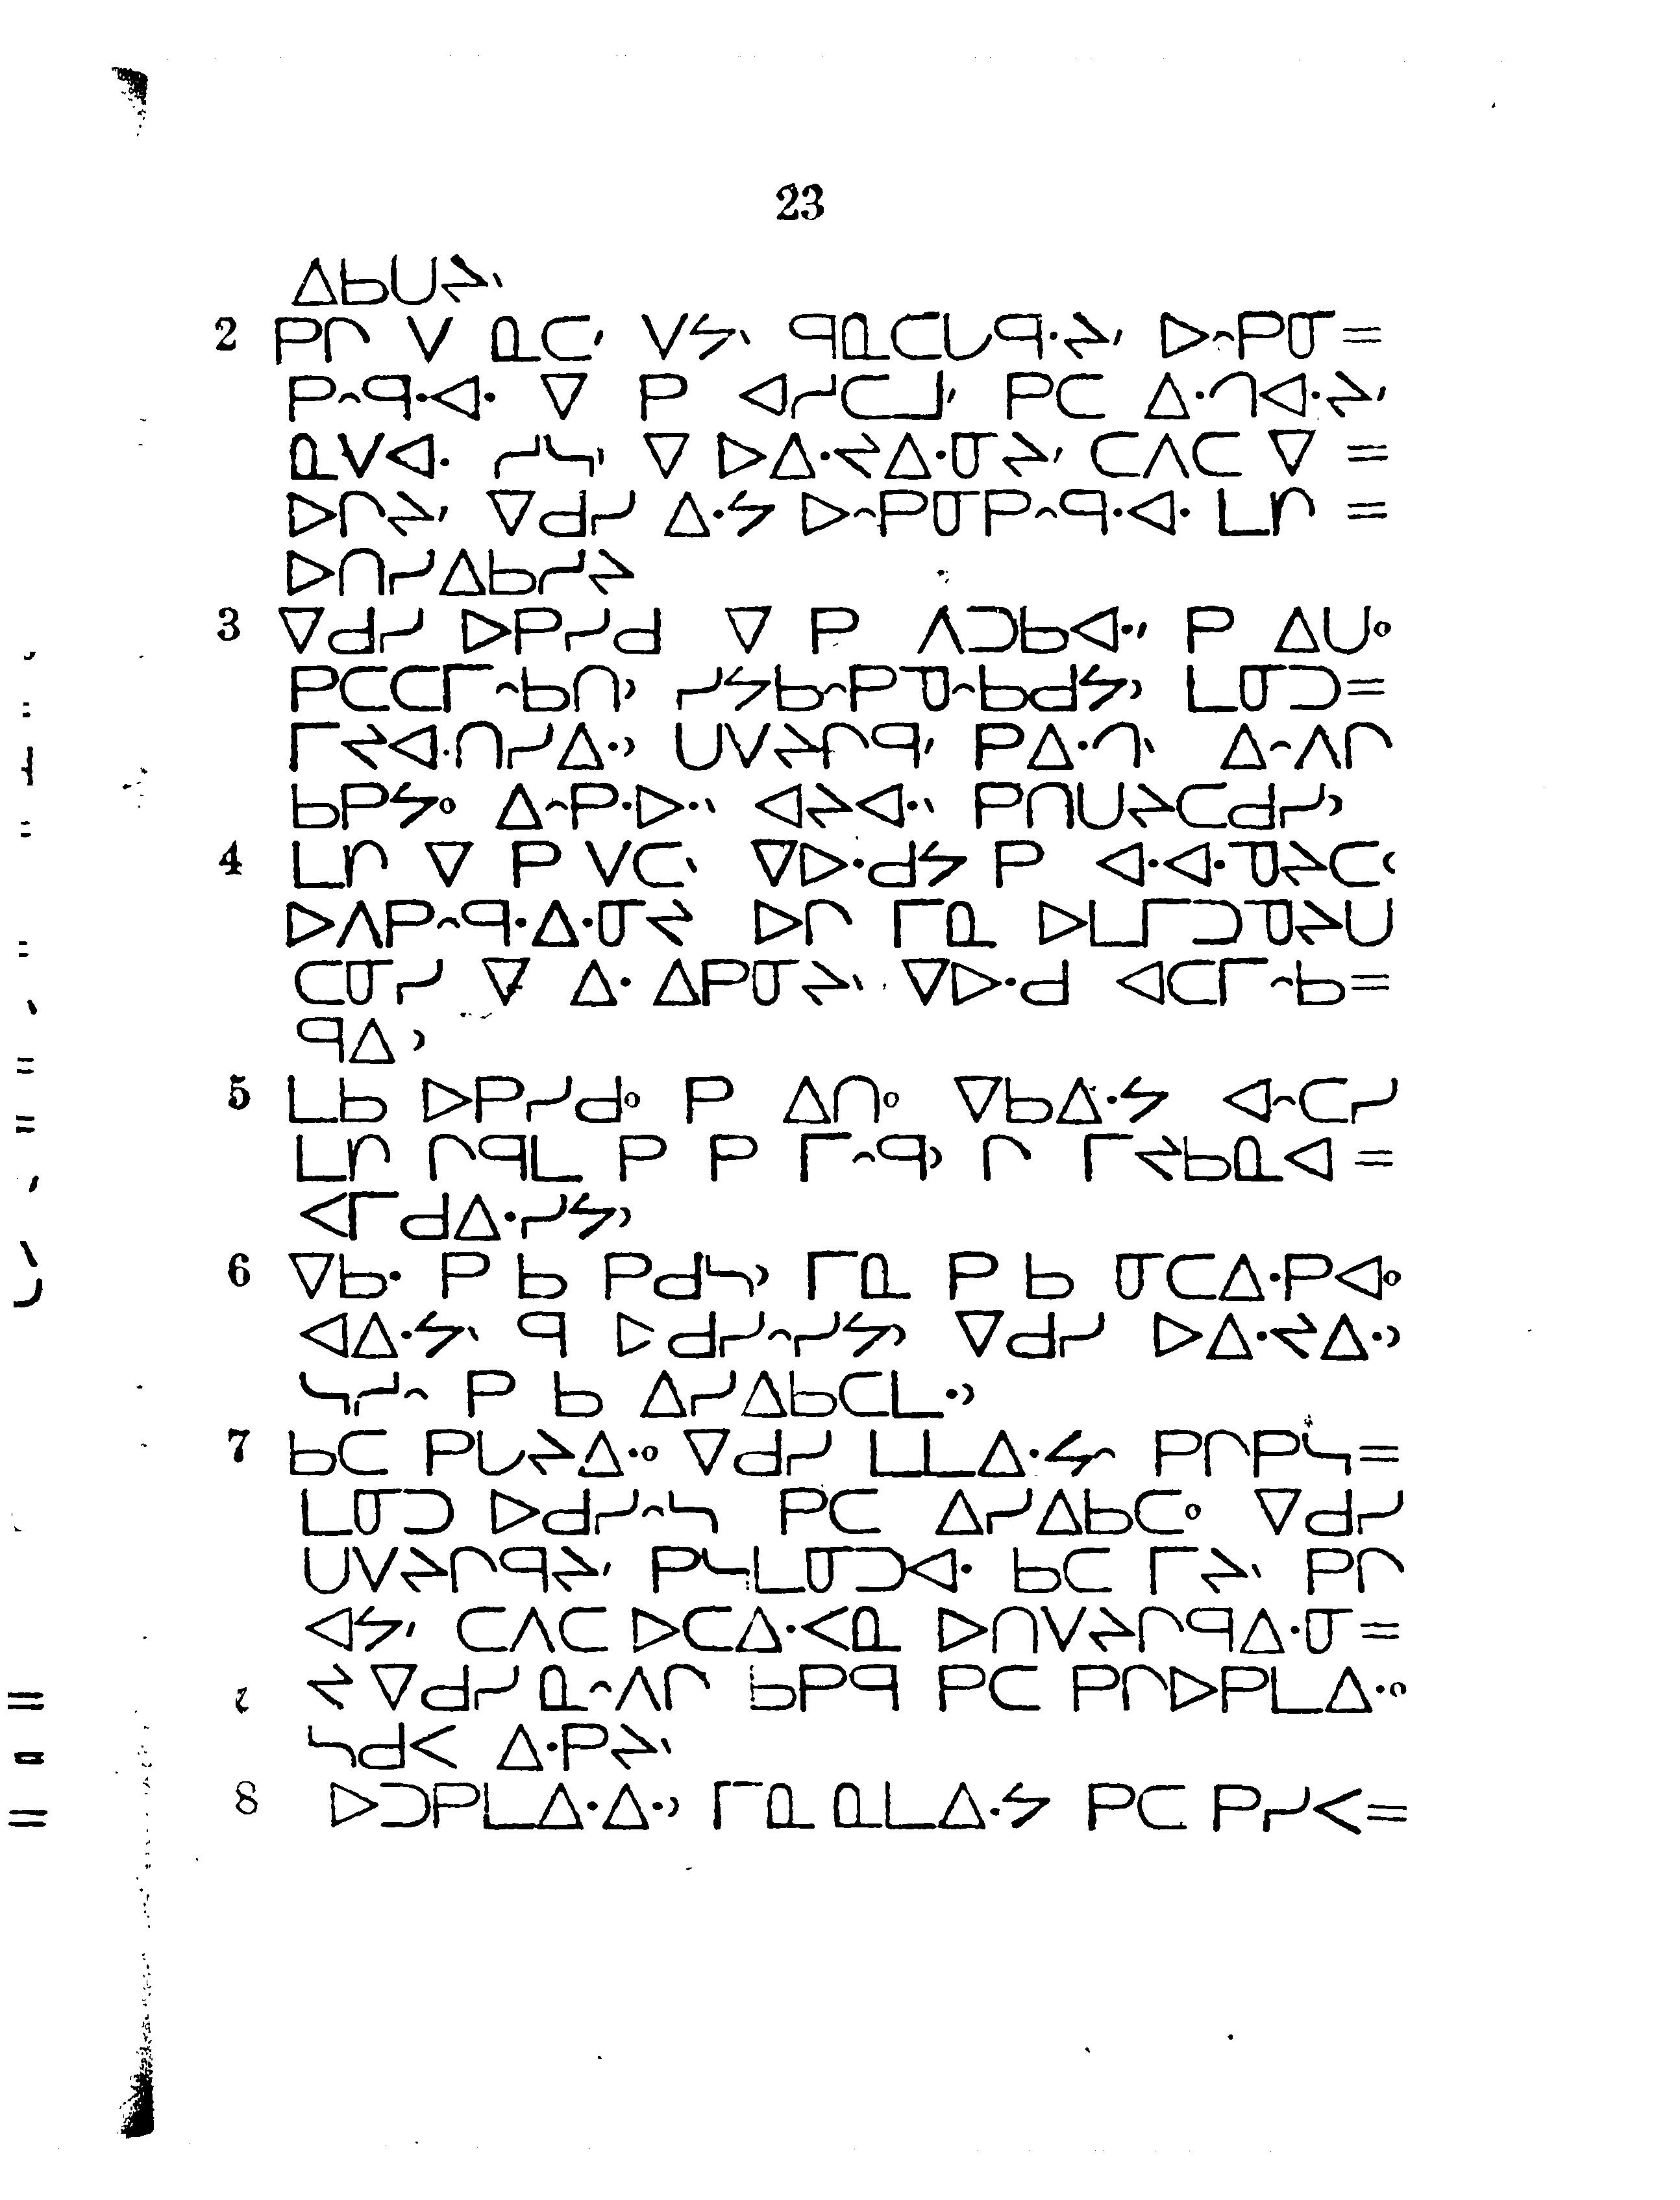 23
ᐃᑲᑌᔨᐠ
2 ᑭᒋ ᐯ ᓇᑕᐟ ᐯᔕᐠ ᑫᓇᑕᒐᑫᐧᔨᐟ ᐅᐢᑭᓂ=
ᑭᐢᑫᐧᐊᐧ ᐁ ᑭ ᐊᓯᑕᒧᐟ ᑭᑕ ᐃᐧᒉᐊᐧᔨᐟ
ᓇᐯᐊᐧ ᓯᓴᐣ ᐁ ᐅᐃᐧᔪᐃᐧᓂᔨᐟ ᑕᐱᑕ ᐁ =
ᐅᒋᔨᐟ ᐁᑯᓯ ᐃᐧᔕ ᐅᐢᑭᓂᑭᐢᑫᐧᐊᐧ ᒪᒋ =
ᐅᑎᓯᐃᑲᓯᔨ
3 ᐁᑯᓯ ᐅᑭᓯᑯ ᐁ ᑭ ᐱᑐᑲᐊᐧᐟ ᑭ ᐃᑌᐤ
ᑭᑕᑕᒥᐢᑲᑎᐣ ᓯᔕᑲᐢᑭᓀᐢᑲᑯᔕᐣ ᒪᓂᑐ=
ᒥᔪᐊᐧᑎᓯᐃᐧᐣ ᑌᐯᔨᒋᑫᐟ ᑭᐃᐧᒉᐠ ᐃᐢᐱᒋ
ᑲᑭᔕᐤ ᐃᐢᑭᐧᐅᐧᐠ ᐊᔨᐊᐧᐠ ᑭᑎᑌᔨᑕᑯᓯᐣ
4 ᒪᒋ ᐁ ᑭ ᐯᑕᐠ ᐁᐅᐧᑯᔕ ᑭ ᐊᐧᐊᐧᓀᔨᑕᒼ
ᐅᐱᑭᐢᑫᐧᐃᐧᓂᔪ ᐅᒋ ᒥᓇ ᐅᒪᒥᑐᓀᔨᑌ
ᑕᓂᓯ ᐁ ᐃᐧ ᐃᑭᓂᔨᐠ ᐁᐅᐧᑯ ᐊᑕᒥᐢᑲ=
ᑫᐃᐣ
5 ᒪᑲ ᐅᑭᓯᑯᐤ ᑭ ᐃᑎᐤ ᐁᑲᐃᐧᔕ ᐊᐢᑕᓯ
ᒪᒋ ᒋᑫᒪ ᑭ ᑭ ᒥᐢᑫᐣ ᒋ ᒥᔪᑲᓇᐊ =
ᐸᒥᑯᐃᐧᓯᔕᐣ
6 ᐁᑲᐧ ᑭ ᑲ ᑭᑯᓴᐣ ᒥᓇ ᑭ ᑲ ᓂᑕᐃᐧᑭᐊᐤ
ᐊᐃᐧᔕᐠ ᑫ ᐅᑯᓯᐢᓯᔕᐣ ᐁᑯᓯ ᐅᐃᐧᔪᐃᐧᐣ
ᓴᓯᐢ ᑭ ᑲ ᐃᓯᐃᑲᑕᒪᐧᐣ
7 ᑲᑕ ᑭᒐᔨᐃᐧᐤ ᐁᑯᓯ ᒪᒪᐃᐧᔕᐢ ᑭᒋᑭᓴ=
ᒪᓂᑐ ᐅᑯᓯᐢᓴ ᑭᑕ ᐃᓯᐃᑲᑕᐤ ᐁᑯᓯ
ᑌᐯᔨᒋᑫᔨᐟ ᑭᓴᒪᓂᑐᐊᐧ ᑲᑕ ᒥᔨᐠ ᑭᒋ
ᐊᔕᐟ ᑕᐱᑕ ᐅᑕᐃᐧᐸᓇ ᐅᑎᐯᔨᒋᑫᐃᐧᓂ=
ᔪ ᐁᑯᓯ ᓇᐢᐱᒋ ᑲᑭᑫ ᑭᑕ ᑭᒋᐅᑭᒪᐃᐧᐤ
ᓴᑯᐸ ᐃᐧᑭᔨᐠ
8 ᐅᑐᑭᒪᐃᐧᐃᐧᐣ ᒥᓇ ᓇᒪᐃᐧᔕ ᑭᑕ ᑭᓯᐸ=